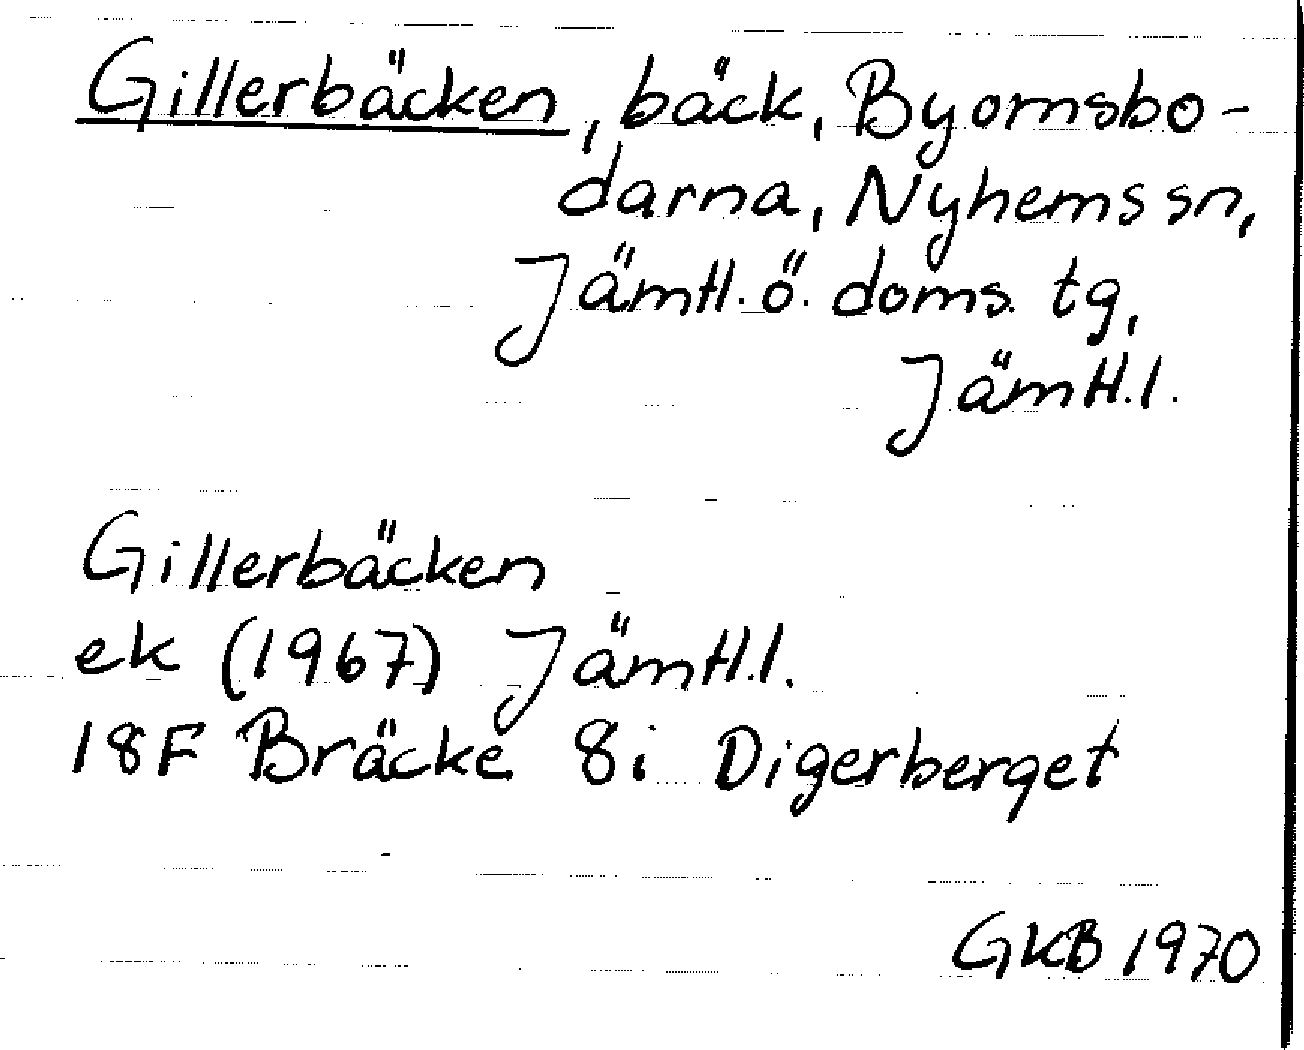 Gillerbäcken, bäck, Byomsbo-
darna, Nyhems sn,
Jämtl. ö. doms. tg,
Jämtl.l.
Gillerbäcken
ek (1967) Jämtl.l.
18F Bräcke 8i Digerberget
GKB 1970